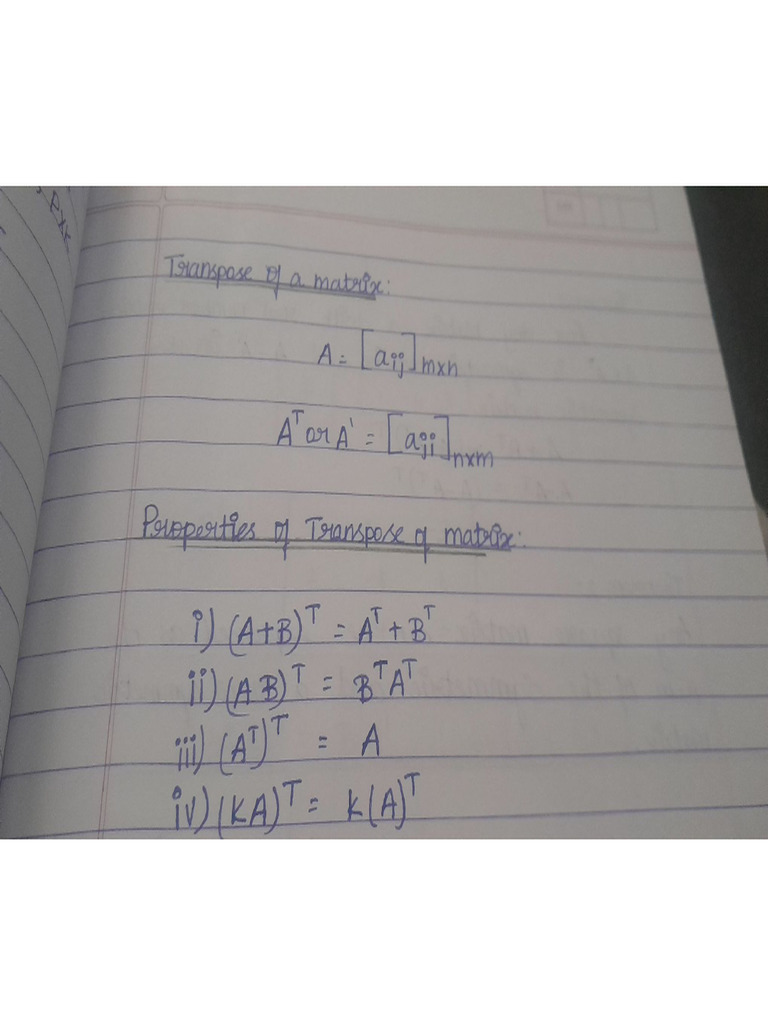 Transpose of a matrix:
A = [aij]m×n
Aᵀ or A' = [aji]n×m
Properties of Transpose of matrix:
i) (A+B)ᵀ = Aᵀ + Bᵀ
ii) (AB)ᵀ = BᵀAᵀ
iii) (Aᵀ)ᵀ = A
iv) (KA)ᵀ = K(A)ᵀ